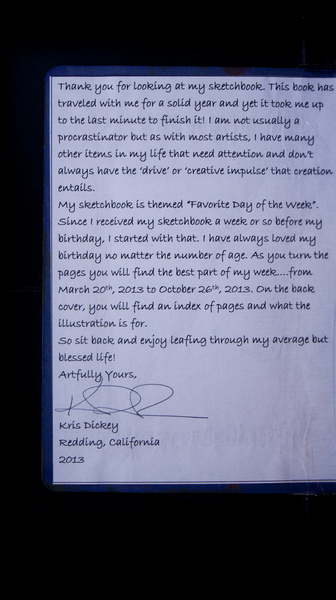 Thank you for looking at my sketchbook. This book has
traveled with me for a solid year and yet it took me up
to the last minute to finish it! I am not usually a
procrastinator but as with most artists, I have many
other items in my life that need attention and don't
always have the 'drive' or 'creative impulse' that creation
entails.
My sketchbook is themed "Favorite Day of the Week".
Since I received my sketchbook a week or so before my
birthday, I started with that. I have always loved my
birthday no matter the number of age. As you turn the
pages you will find the best part of my week....from
March 20th, 2013 to October 26th, 2013. On the back
cover, you will find an index of pages and what the
illustration is for.
So sit back and enjoy leafing through my average but
blessed life!
Artfully Yours,
Kris Dickey
Redding, California
2013